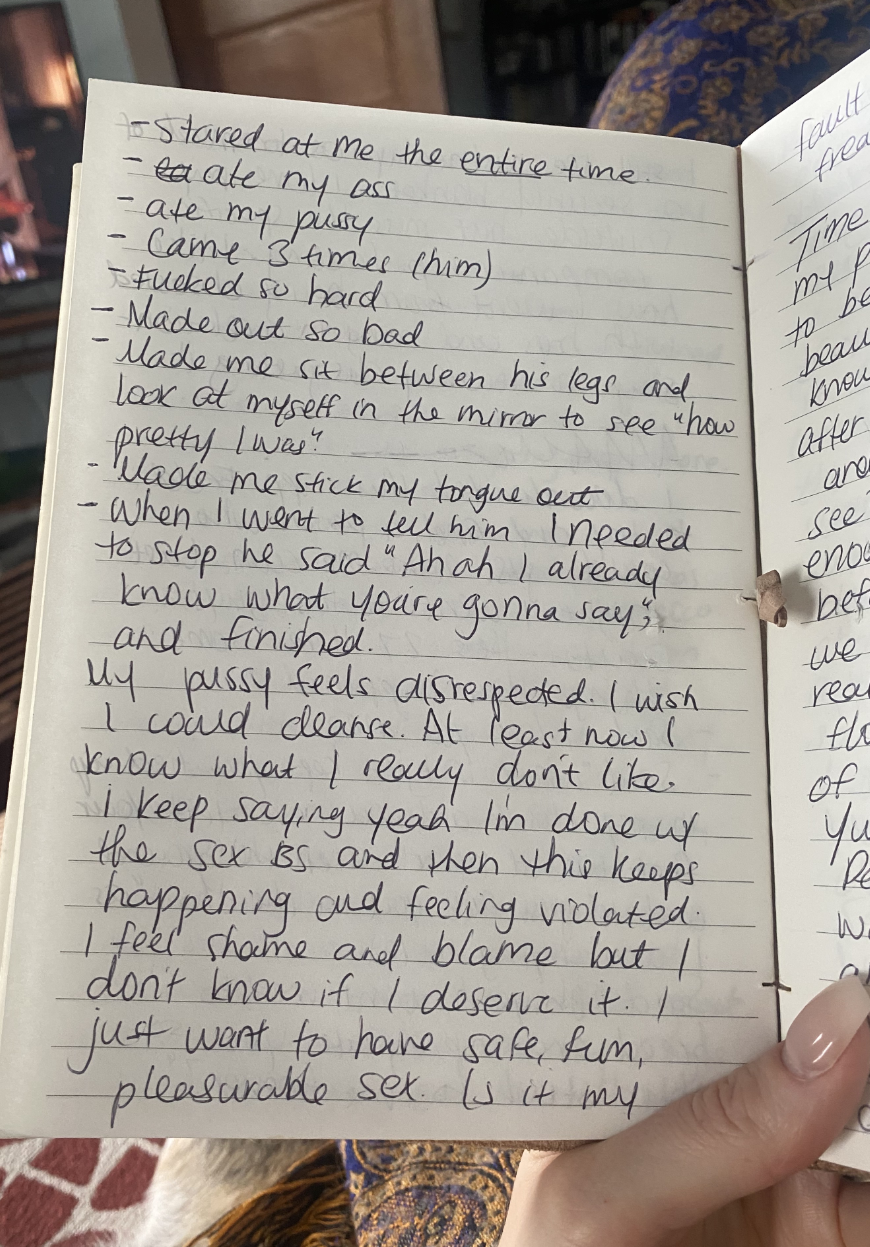 - Stared at me the entire time.
- ate my ass
- ate my pussy
- Came 3 times (him)
- Fucked so hard
- Made out so bad
- Made me sit between his legs and
look at myself in the mirror to see "how
pretty I was"
- Made me stick my tongue out
- When I went to tell him I needed
to stop he said "Ah ah I already
know what you're gonna say",
and finished.
My pussy feels disrespected. I wish
I could cleanse. At least now I
know what I really don't like.
i keep saying yeah I'm done w/
the sex BS and then this keeps
happening and feeling violated.
I feel shame and blame but I
don't know if I deserve it. I
just want to have safe, fun,
pleasurable sex. Is it my
fault
Time
my
to
know
after
see
we
of